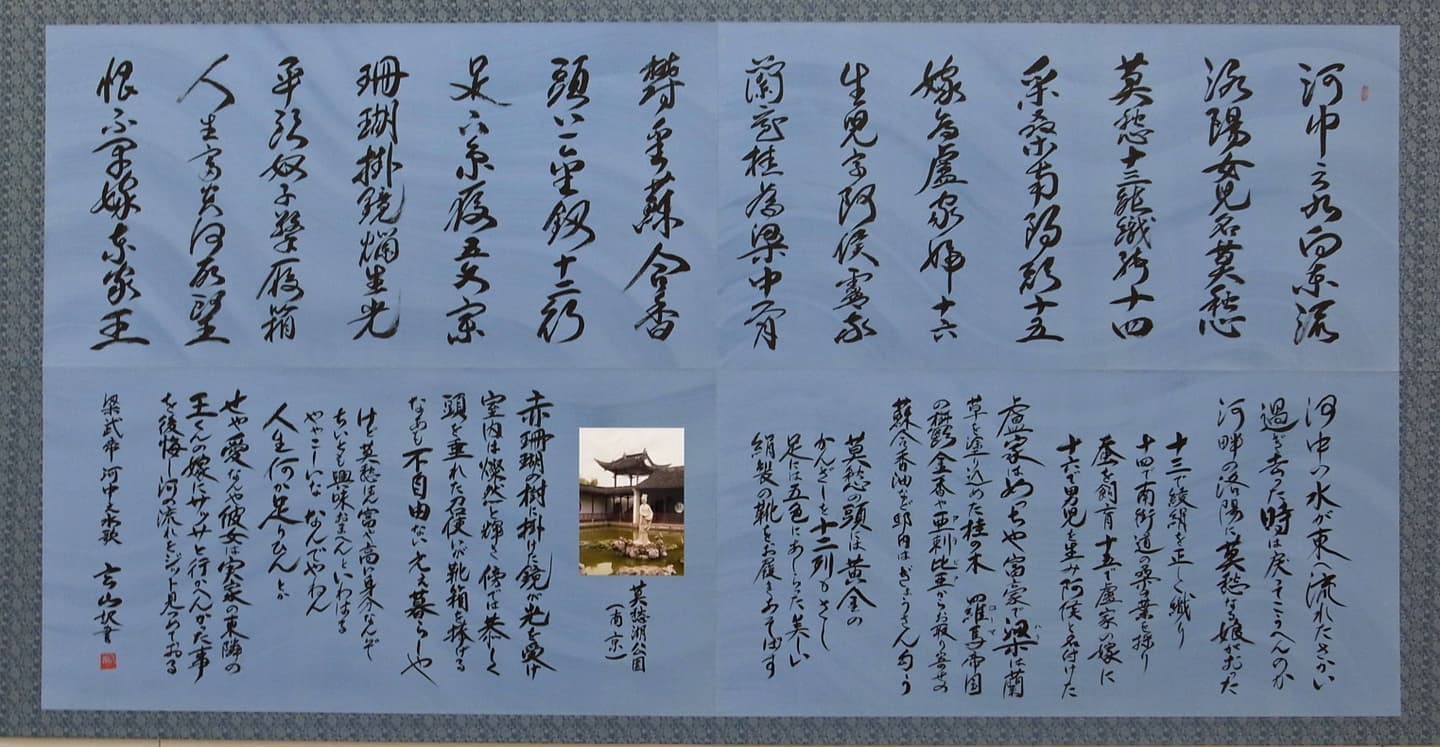 河中之水向东流
洛陽女兒名莫愁
莫愁十三能織綺十四
采桑南陌頭十五
嫁為盧家婦十六
生兒字阿侯盧家
蘭室桂為梁中有
欝金蘇合香
頭上金釵十二行
足下糸履五文章
珊瑚掛鏡爛生光
平頭奴子擎履箱
人生富貴何所望
恨不早嫁东家王
河中の水が東へ流れたさかい
過ぎ去った時は戻ってこうへんのか
河畔の洛陽に莫愁なる娘がおった
十三で綾絹を正しく織り
十四で南街道の桑の葉を採り
蚕を飼育十五で盧家の嫁に
十六で男児を生み阿侯と名付けた
盧家はめっちゃ富豪で梁は蘭
草を塗り込めた桂の木 羅馬帝国
の欝金香や亜剌比亜からお取り寄せの
蘇合香油など邸内はぎょうさん匂う
莫愁の頭は黄金の
かんざしを十二列もさし
足には五色にあしらった美しい
絹製の靴をお履きあそばす
莫愁湖公園
(南京)
赤珊瑚の樹に掛けた鏡が光を受け
室内は燦然と輝き、傍では恭しく
頭を垂れた召使いが靴箱を捧げる
なあも不自由ない元え暮らしや
けど莫愁はん富や高い身分なんぞ
ちいとも興味おまへんといわはる
ややこしいな なんでやねん
人生何が足りひんと
せや愛なんや彼女は実家の東隣の
王さんの嫁にサッサと行かへんかった事
を後悔し河の流れをジット見つめておる
梁武帝 河中之水歌